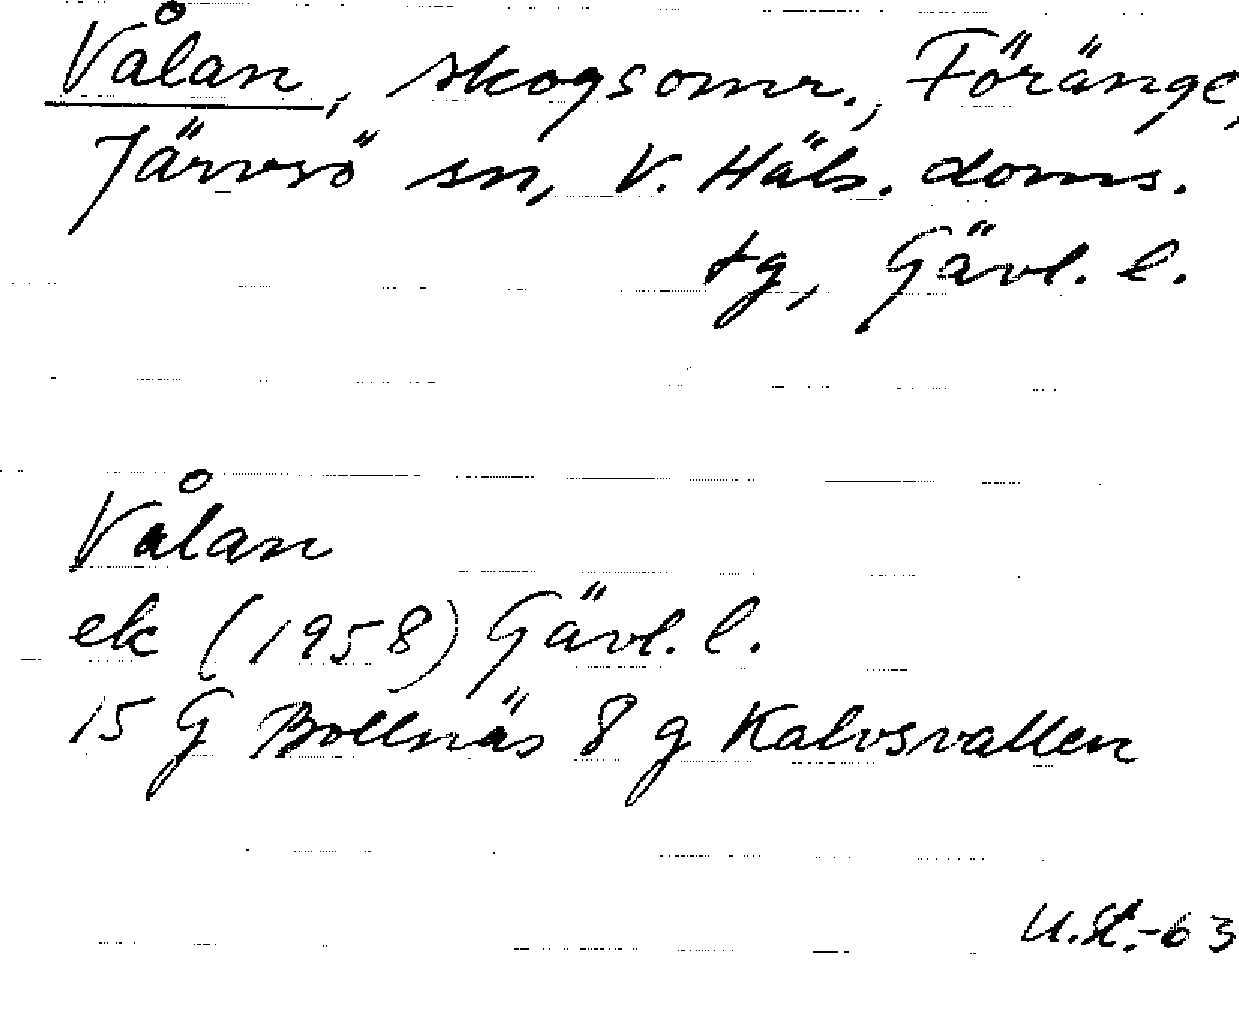 Vålan, skogsomr., Föränge,
Järvsö sn, V. Häls. doms.
tg, Gävl. l.
Vålan
ek (1958) Gävl. l.
15 G Bollnäs 8 g Kalvsvallen
U.St.-63